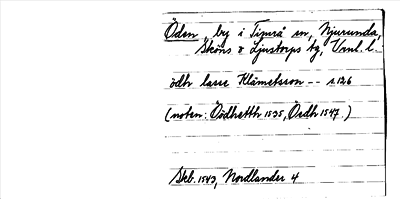 Öden, by i Timrå sn, Njurunda,
Sköns & Ljustorps tg, Vrnl. l.
ödh lasse Klämetsson -- s. 126
(noten: Öödhetth 1535, Öedh 1547.)
Skb. 1543, Nordlander 4